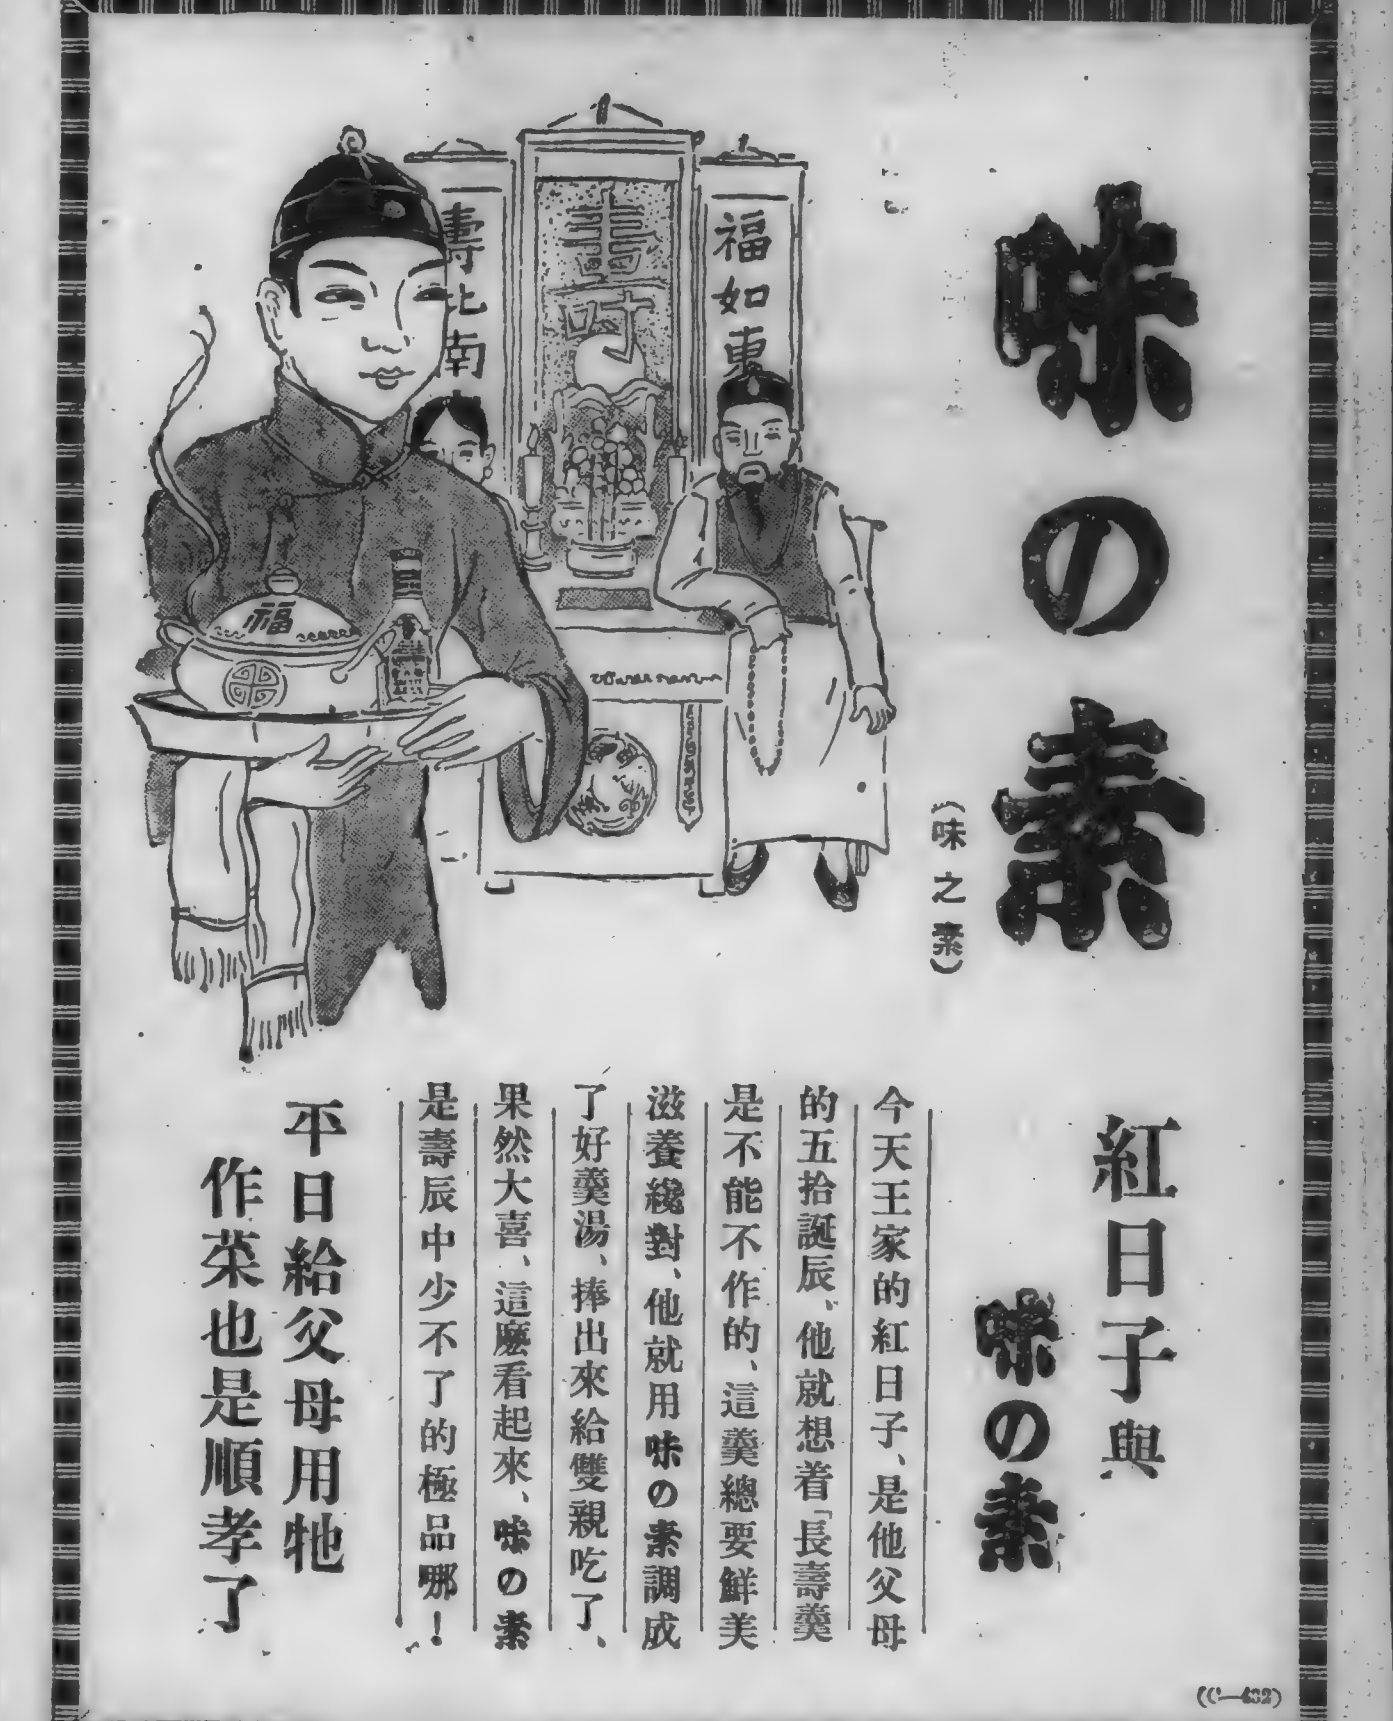 味の素
(味之素)
福如東
壽
壽比南
福
紅日子與
味の素
今天王家的紅日子、是他父母
的五拾誕辰、他就想着「長壽羹
是不能不作的、這羹總要鮮美
滋養纔對、他就用味の素調成
了好羹湯、捧出來給雙親吃了、
果然大喜、這麼看起來、味の素
是壽辰中少不了的極品哪！
平日給父母用牠
作菜也是順孝了
(C—432)